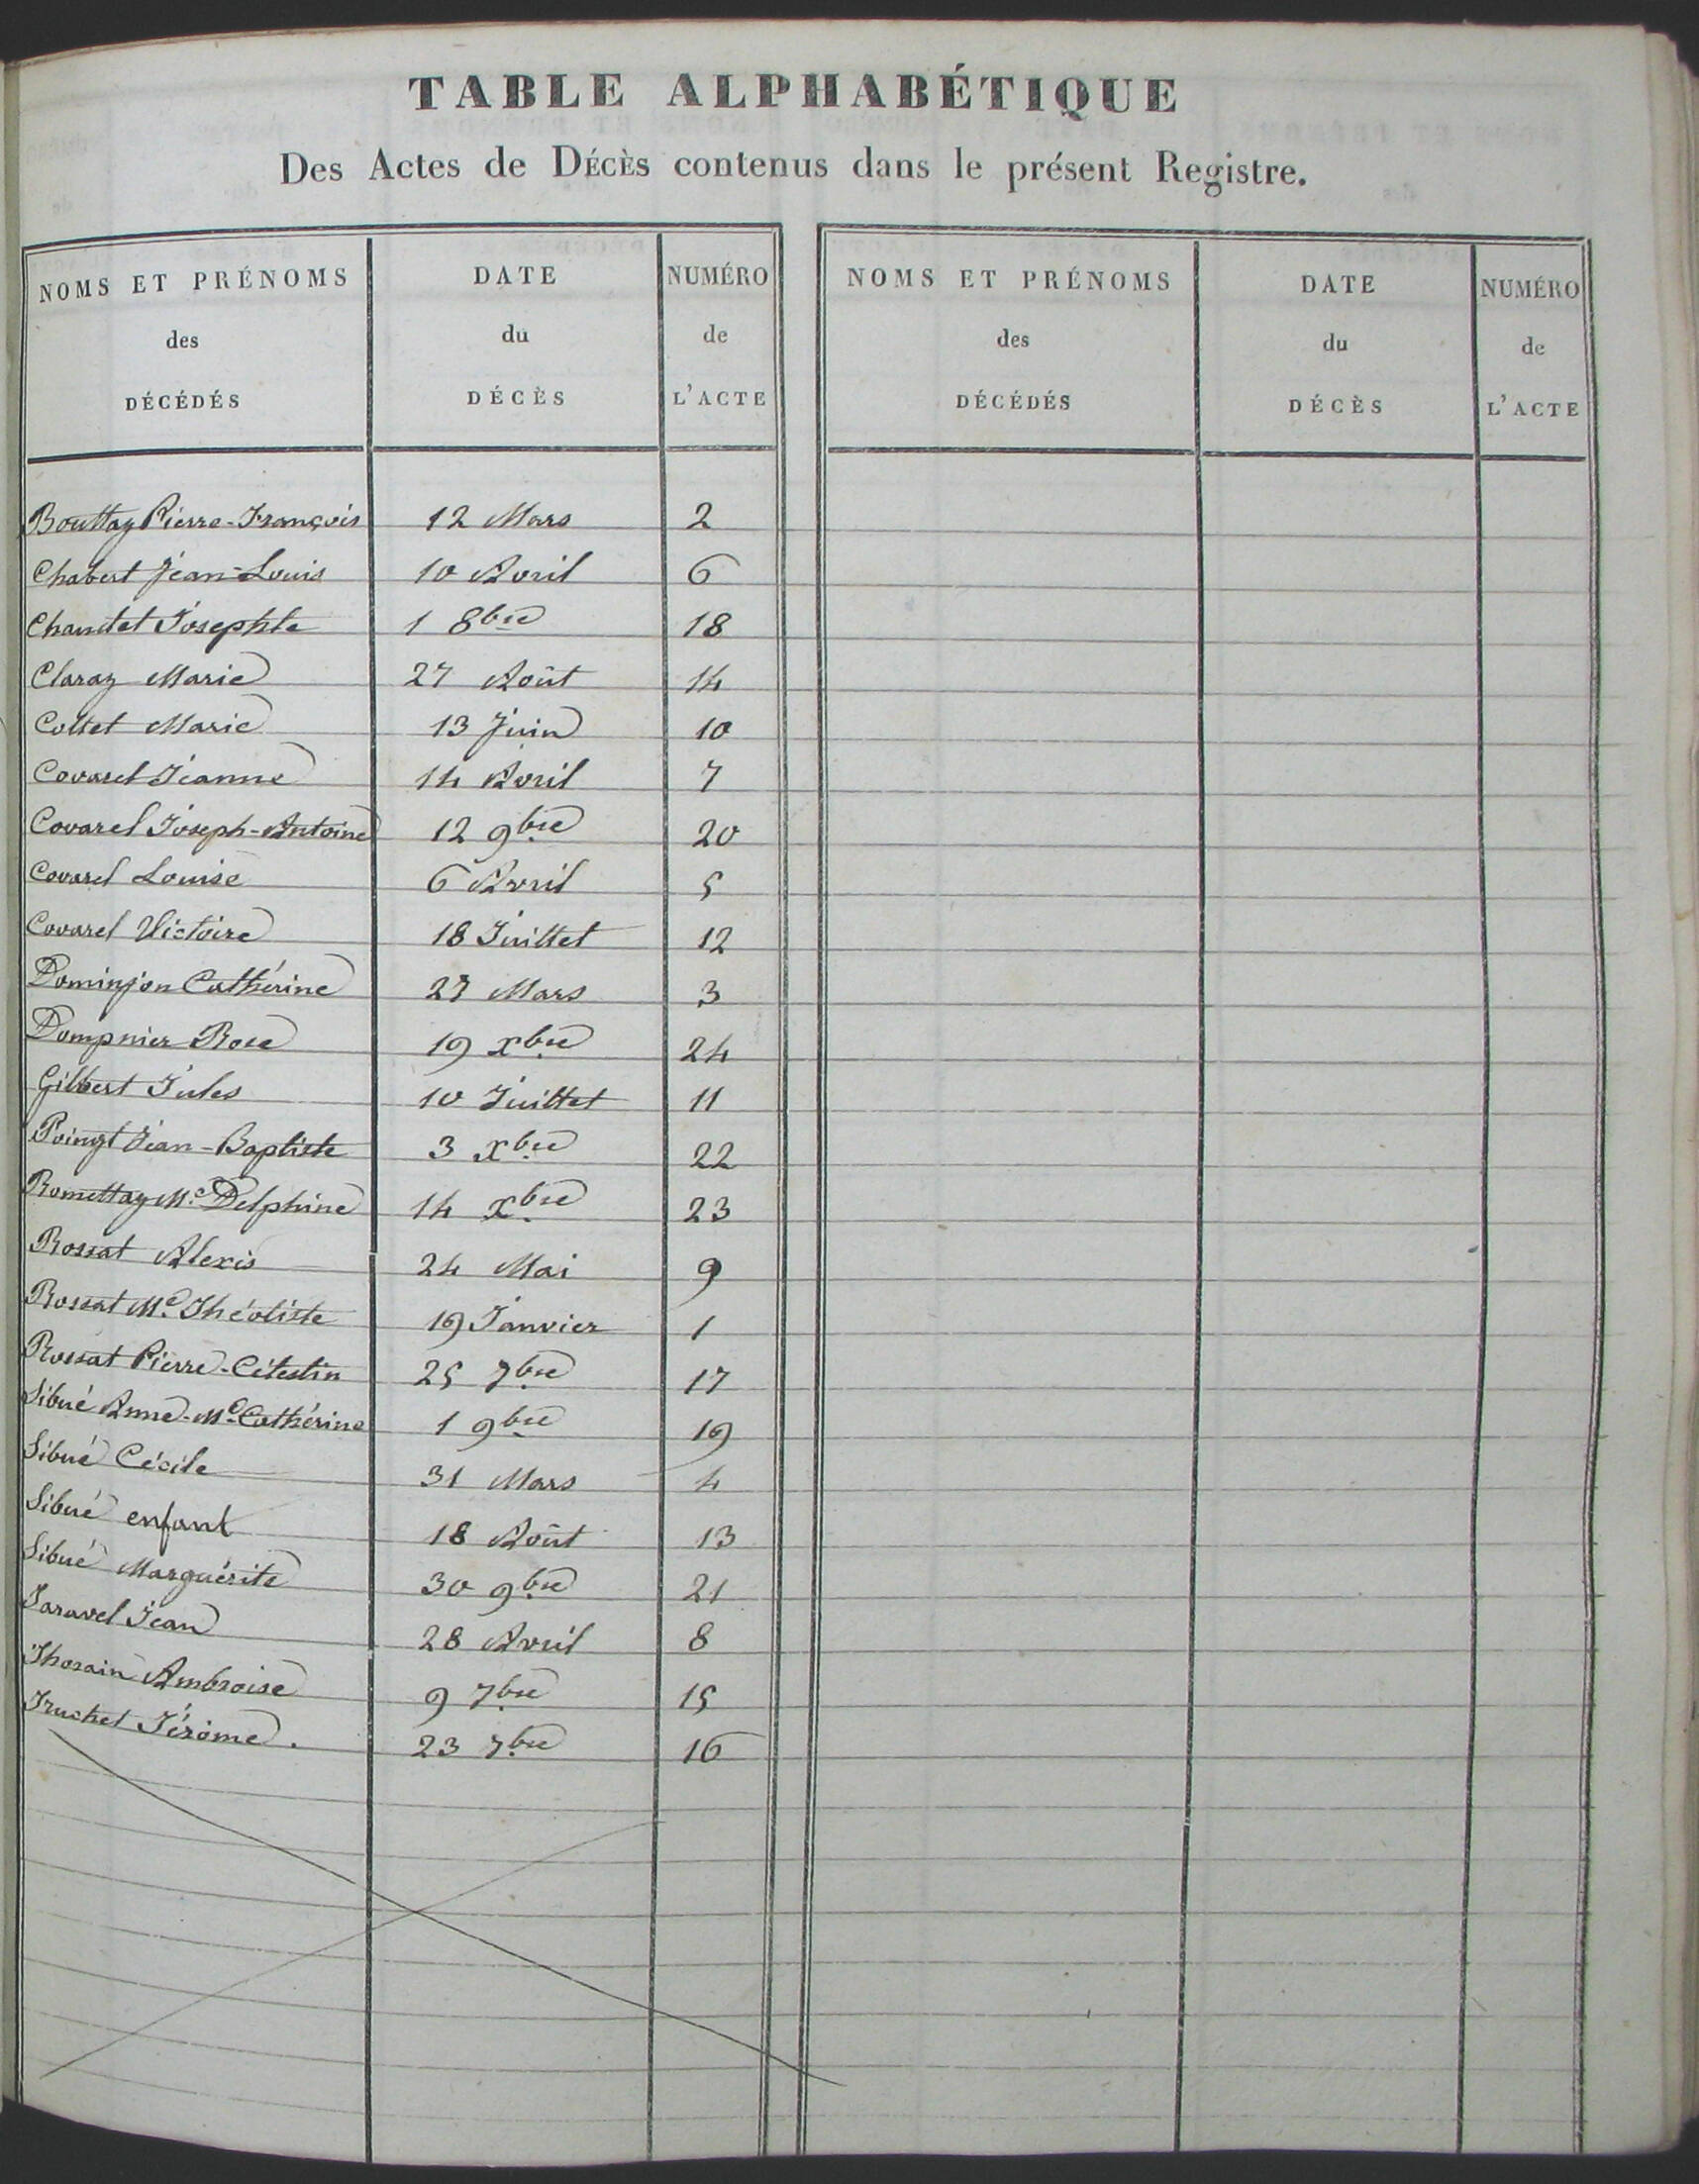 TABLE ALPHABÉTIQUE
Des Actes de DÉCÈS contenus dans le présent Registre.
NOMS ET PRÉNOMS des DÉCÉDÉS | DATE du DÉCÈS | NUMÉRO de L'ACTE | NOMS ET PRÉNOMS des DÉCÉDÉS | DATE du DÉCÈS | NUMÉRO de L'ACTE
Bouttaz Pierre-François 12 Mars 2
Chabert Jean-Louis 10 Avril 6
Chaudet Josephte 1 8bre 18
Claraz Marie 27 Août 14
Collet Marie 13 Juin 10
Covarel Jeanne 14 Avril 7
Covarel Joseph-Antoine 12 9bre 20
Covarel Louise 6 Avril 5
Covarel Victoire 18 Juillet 12
Dominjon Cathérine 27 Mars 3
Dompnier Rose 19 xbre 24
Gilbert Jules 10 Juillet 11
Poingt Jean-Baptiste 3 xbre 22
Romettaz Me Delphine 14 xbre 23
Rossat Alexis 24 Mai 9
Rossat Me Théotiste 19 Janvier 1
Rossat Pierre-Célestin 25 7bre 17
Sibué Anne-Me Cathérine 1 9bre 19
Sibué Cécile 31 Mars 4
Sibué enfant 18 Août 13
Sibué Marguérite 30 9bre 21
Taravel Jean 28 Avril 8
Thorain Ambroise 9 7bre 15
Truchet Jérôme. 23 7bre 16